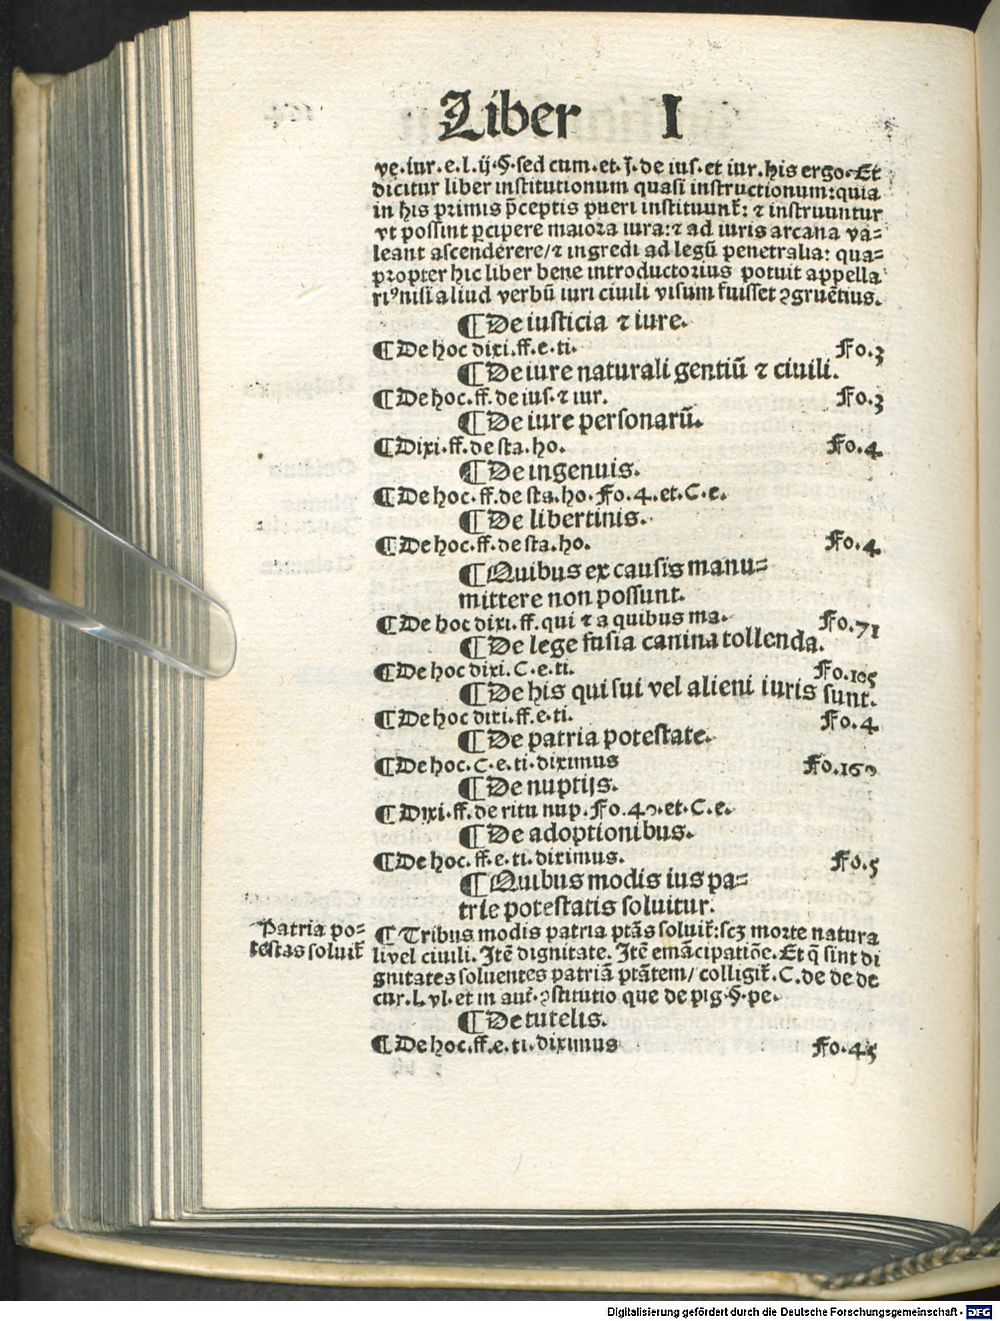 Liber I
ve. iur. e. l. ij. §. sed cum. et. j. de ius. et iur. his ergo. Et
dicitur liber institutionum quasi instructionum: quia
in his primis p̄ceptis pueri instituunt᷑: ⁊ instruuntur
vt possint ꝑcipere maiora iura: ⁊ ad iuris arcana va⸗
leant ascenderere/ ⁊ ingredi ad legū penetralia: qua⸗
propter hic liber bene introductorius potuit appella
riꝰ nisi aliud verbū iuri ciuili visum fuisset ꝯgruētius.
¶ De iusticia ⁊ iure.
¶ De hoc dixi. ff. e. ti. Fo. 3
¶ De iure naturali gentiū ⁊ ciuili.
¶ De hoc. ff. de ius. ⁊ iur. Fo. 3
¶ De iure personarū.
¶ Dixi. ff. de sta. ho. Fo. 4
¶ De ingenuis.
¶ De hoc. ff. de sta. ho. Fo. 4. et. C. e.
¶ De libertinis.
¶ De hoc. ff. de sta. ho. Fo. 4
¶ Quibus ex causis manu⸗
mittere non possunt.
¶ De hoc dixi. ff. qui ⁊ a quibus ma. Fo. 71
¶ De lege fusia canina tollenda.
¶ De hoc dixi. C. e. ti. Fo. 105
¶ De his qui sui vel alieni iuris sunt.
¶ De hoc dixi. ff. e. ti. Fo. 4
¶ De patria potestate.
¶ De hoc. C. e. ti. diximus Fo. 160
¶ De nuptijs.
¶ Dixi. ff. de ritu nup. Fo. 40. et. C. e.
¶ De adoptionibus.
¶ De hoc. ff. e. ti. diximus. Fo. 5
¶ Quibus modis ius pa⸗
trie potestatis soluitur.
Patria po⸗
testas soluit᷑
¶ Tribus modis patria ptās soluit᷑: scꝫ morte natura
li vel ciuili. Itē dignitate. Itē emācipatiōe. Et q̄ sint di
gnitates soluentes patriā ptātem/ colligit᷑. C. de de de
cur. l. vl. et in aut᷑. ꝯstitutio que de pig. §. pe.
¶ De tutelis.
¶ De hoc. ff. e. ti. diximus Fo. 45
Digitalisierung gefördert durch die Deutsche Forschungsgemeinschaft - DFG